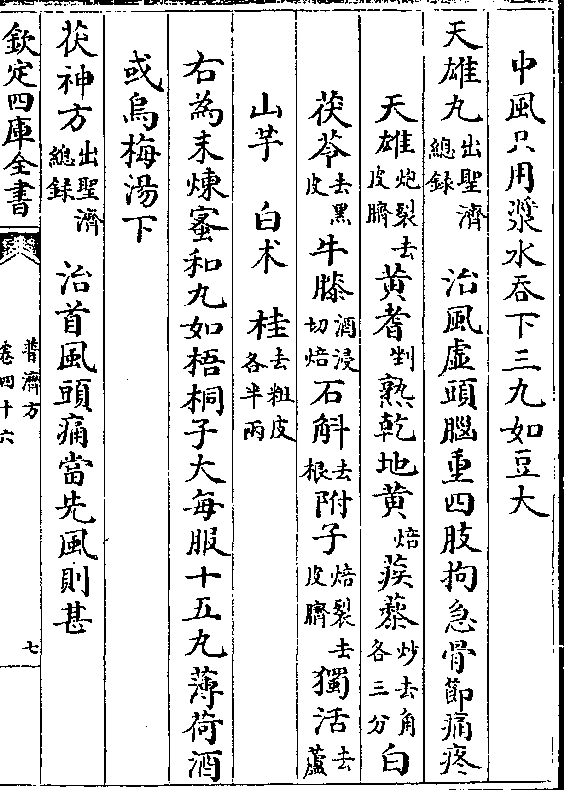 中風只用漿水吞下三丸如豆大
天雄丸出聖濟總録 治風虛頭腦重四肢拘急骨節痛疼
天雄炮裂去皮臍 黄耆剉 熟乾地黄焙 蒺藜炒去角各三分 白
茯苓去黑皮 牛膝酒浸切焙 石斛去根 附子焙裂去皮臍 獨活去蘆
山芋 白朮 桂去粗皮各半兩
右為末煉蜜和丸如梧桐子大每服十五丸薄荷酒
或烏梅湯下
茯神方出聖濟總録 治首風頭痛當先風則甚
欽定四庫全書
普濟方
卷四十六
七